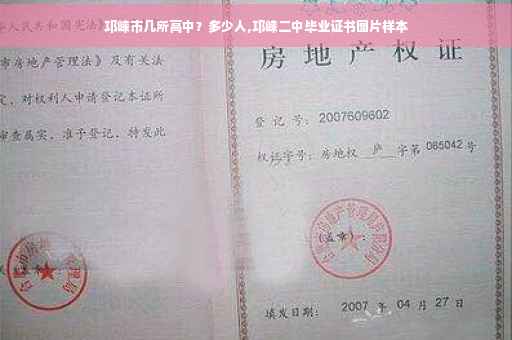 邛崃市几所高中？多少人,邛崃二中毕业证书图片样本
人民共和国宪法》
市房地产管理法》及有关法
定，对权利人申请登记本证所
审查属实，准予登记，特发此
房地产权证
登记号：2007609602
权证字号：房地权 庐 字第 065042 号
房地产管理
(盖章)：
填发日期：2007 年 04 月 27 日